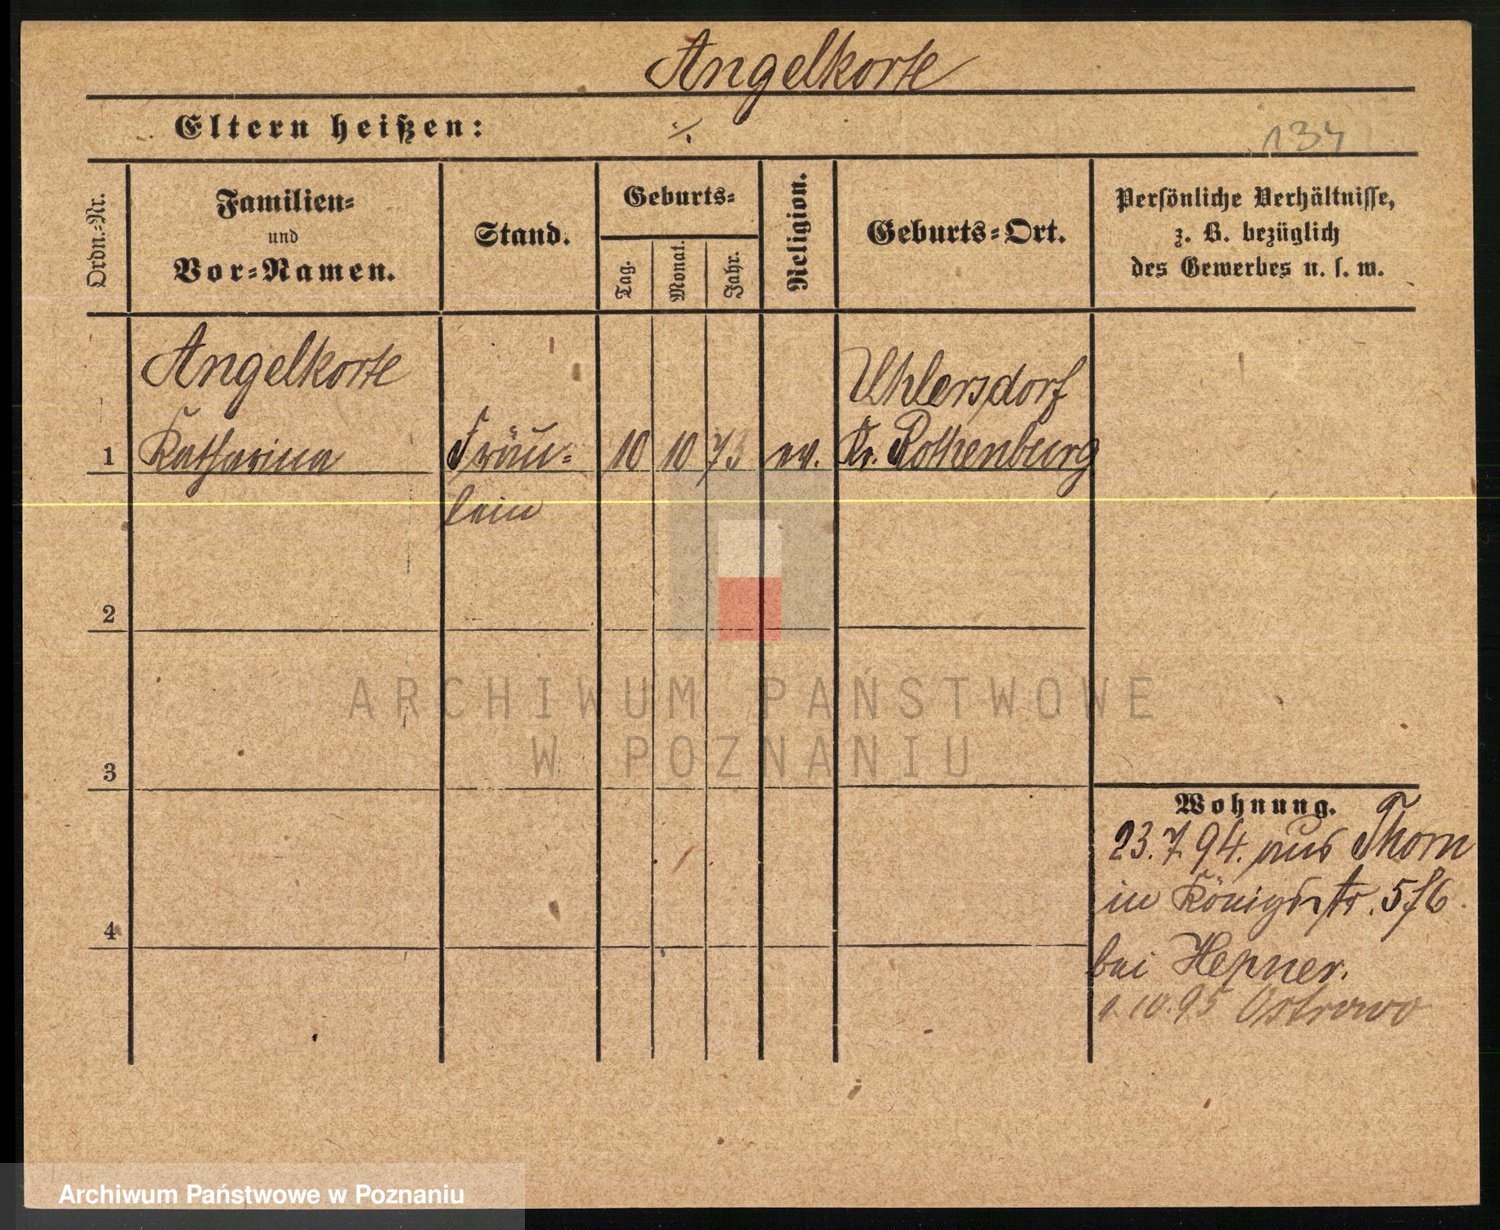 Angelkorte
Eltern heißen: ./.
134
Ordn.-Nr.
Familien-
und
Vor-Namen.
Stand.
Geburts-
Tag.
Monat.
Jahr.
Religion.
Geburts-Ort.
Persönliche Verhältnisse,
z. B. bezüglich
des Gewerbes u. s. w.
Angelkorte
Uhlersdorf
1 Katharina Fräu- 10 10 73 ev. Kr. Rothenburg
lein
2
ARCHIWUM PAŃSTWOWE
W POZNANIU
3
Wohnung.
23.7.94. aus Thorn
in Königstr. 5/6.
4
bei Hepner.
1.10.95 Ostrowo
Archiwum Państwowe w Poznaniu